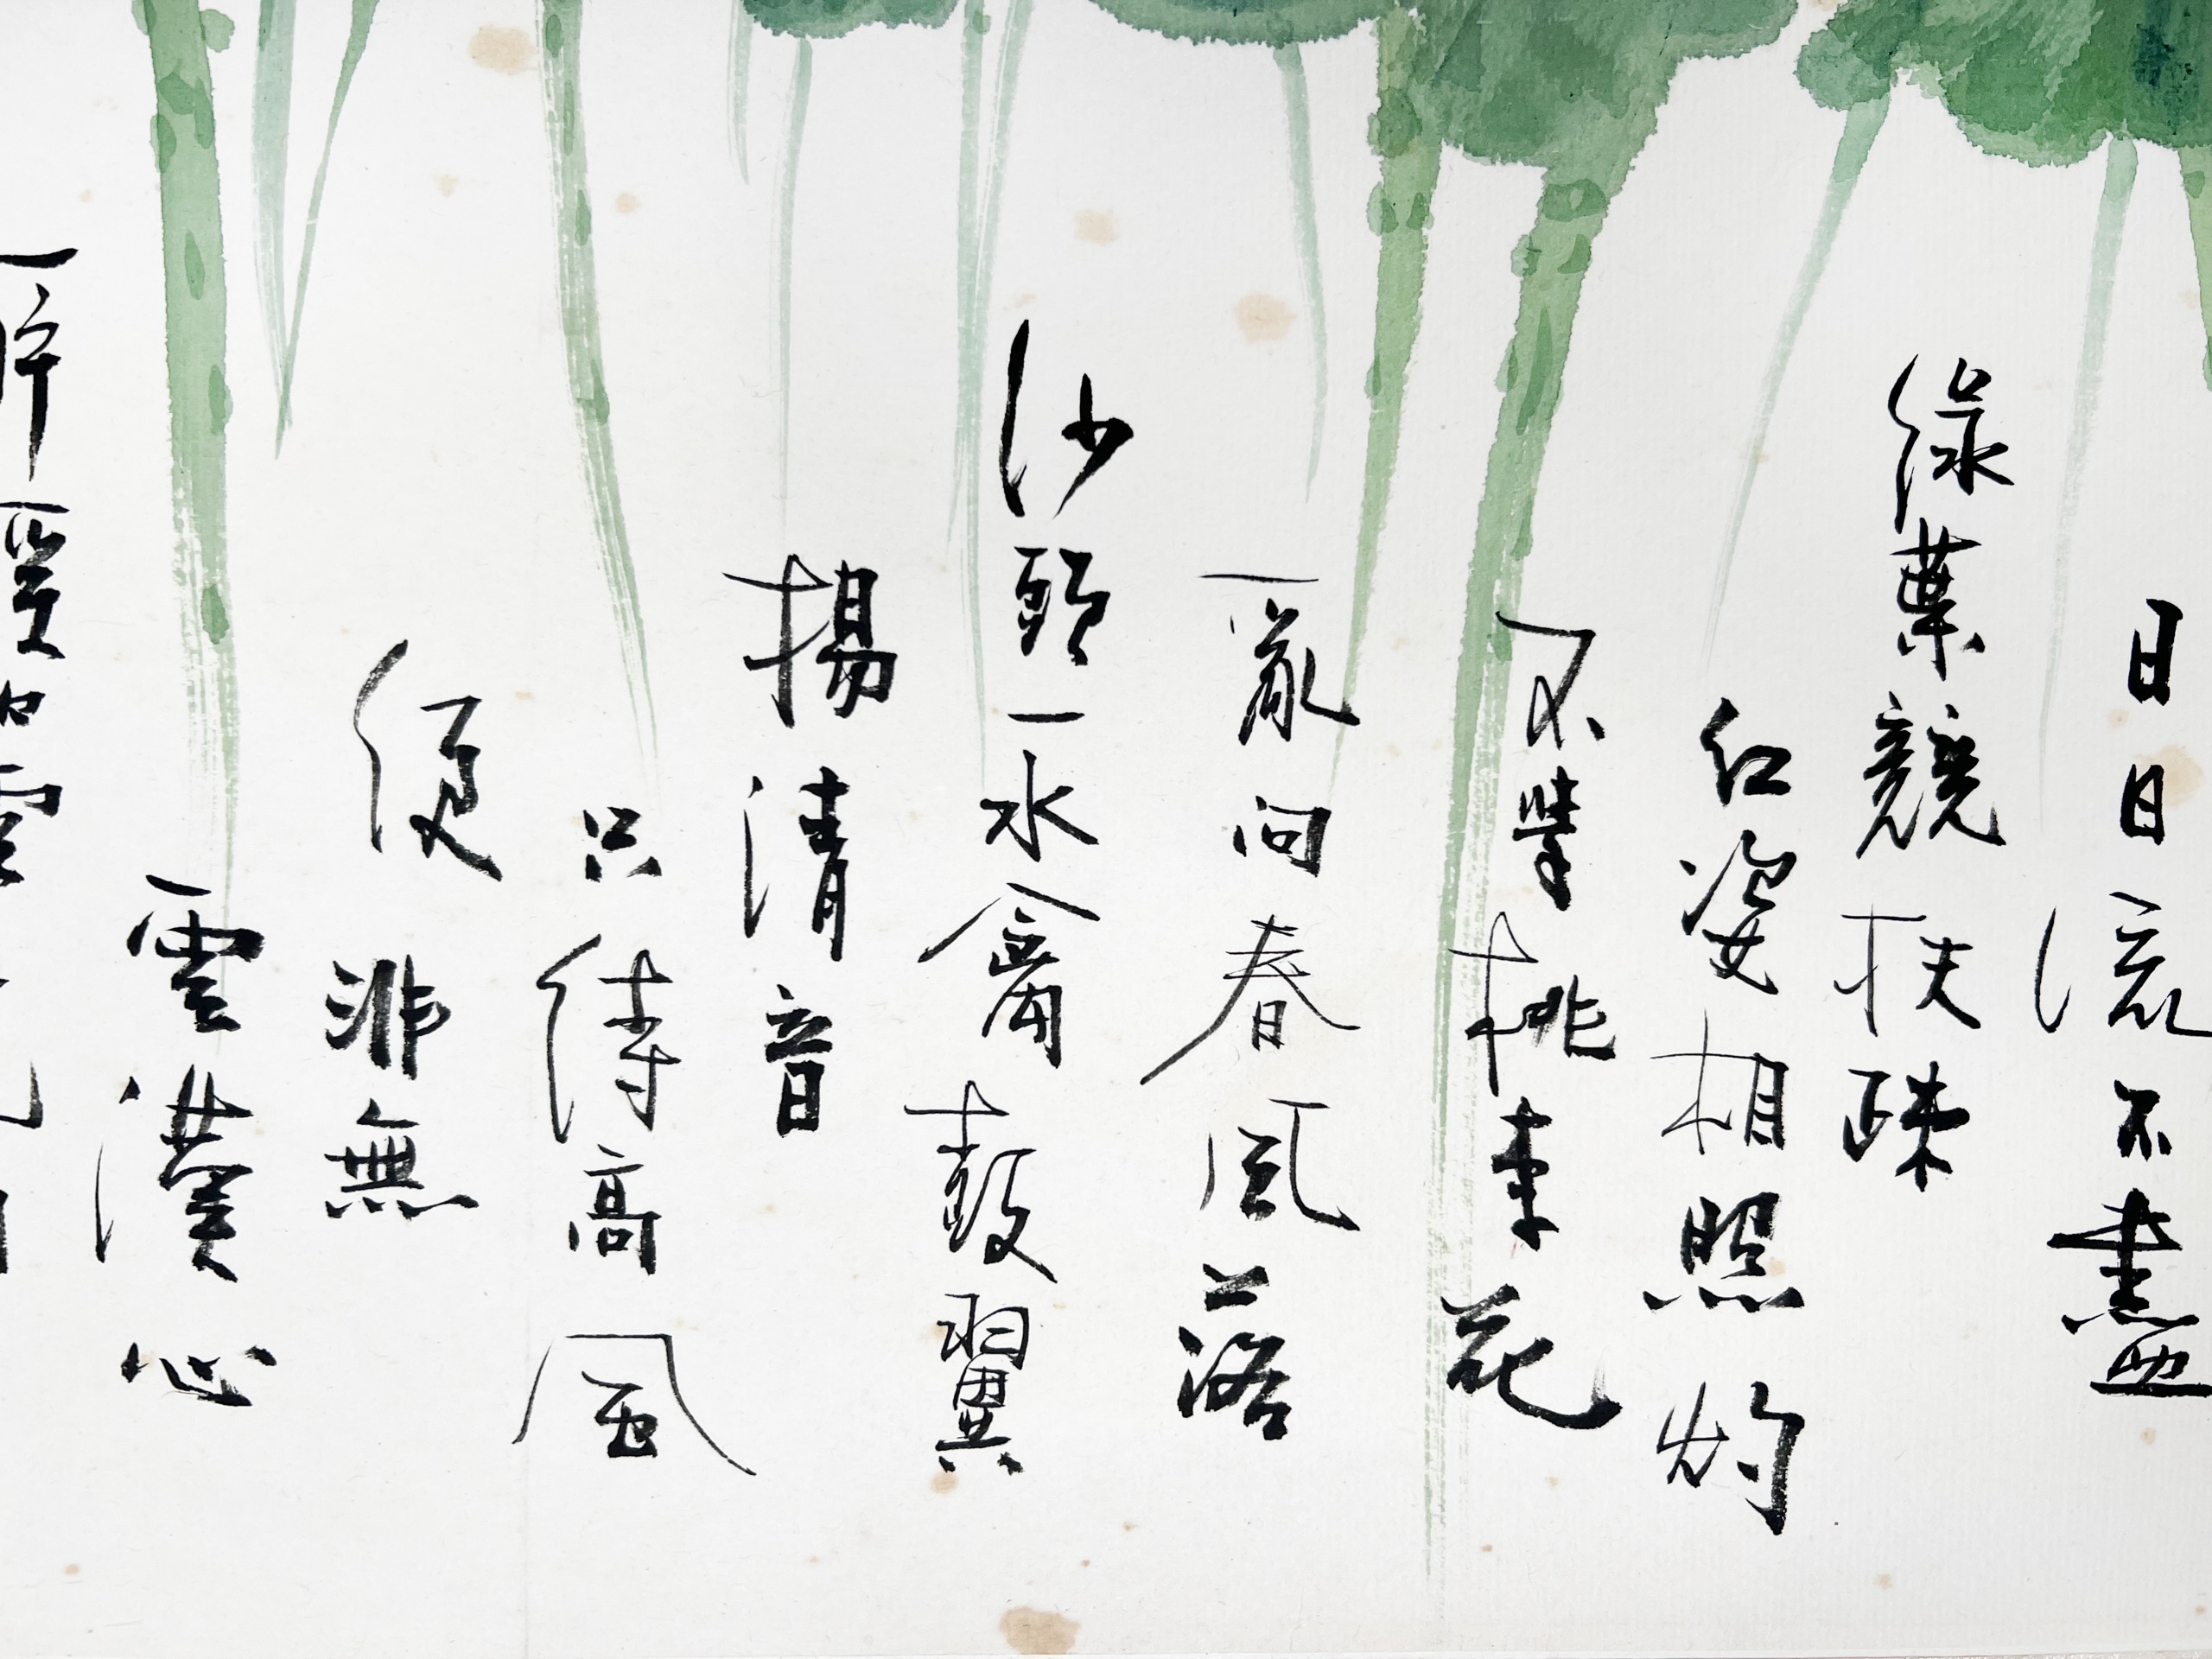 日日流不盡
綠葉競扶疎
紅姿相照灼
不學桃李花
亂向春風落
沙頭一水禽鼓翼
揚清音
只待高風
便非無
雲漢心